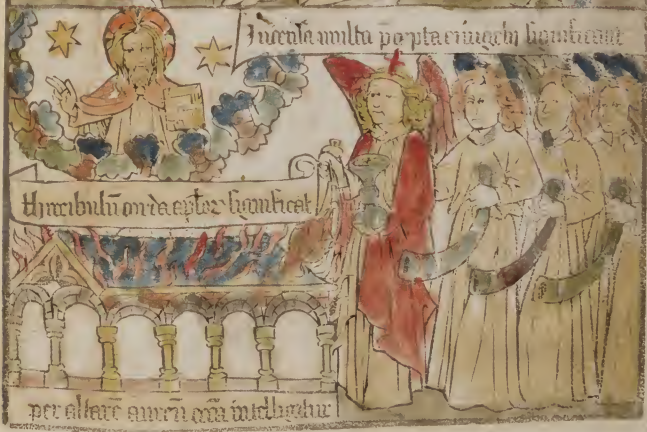 Incensa multa p̄cepta ewāgelij significant
Thuribulū corda aplor significat
per altare aureū eccīa intelligitur